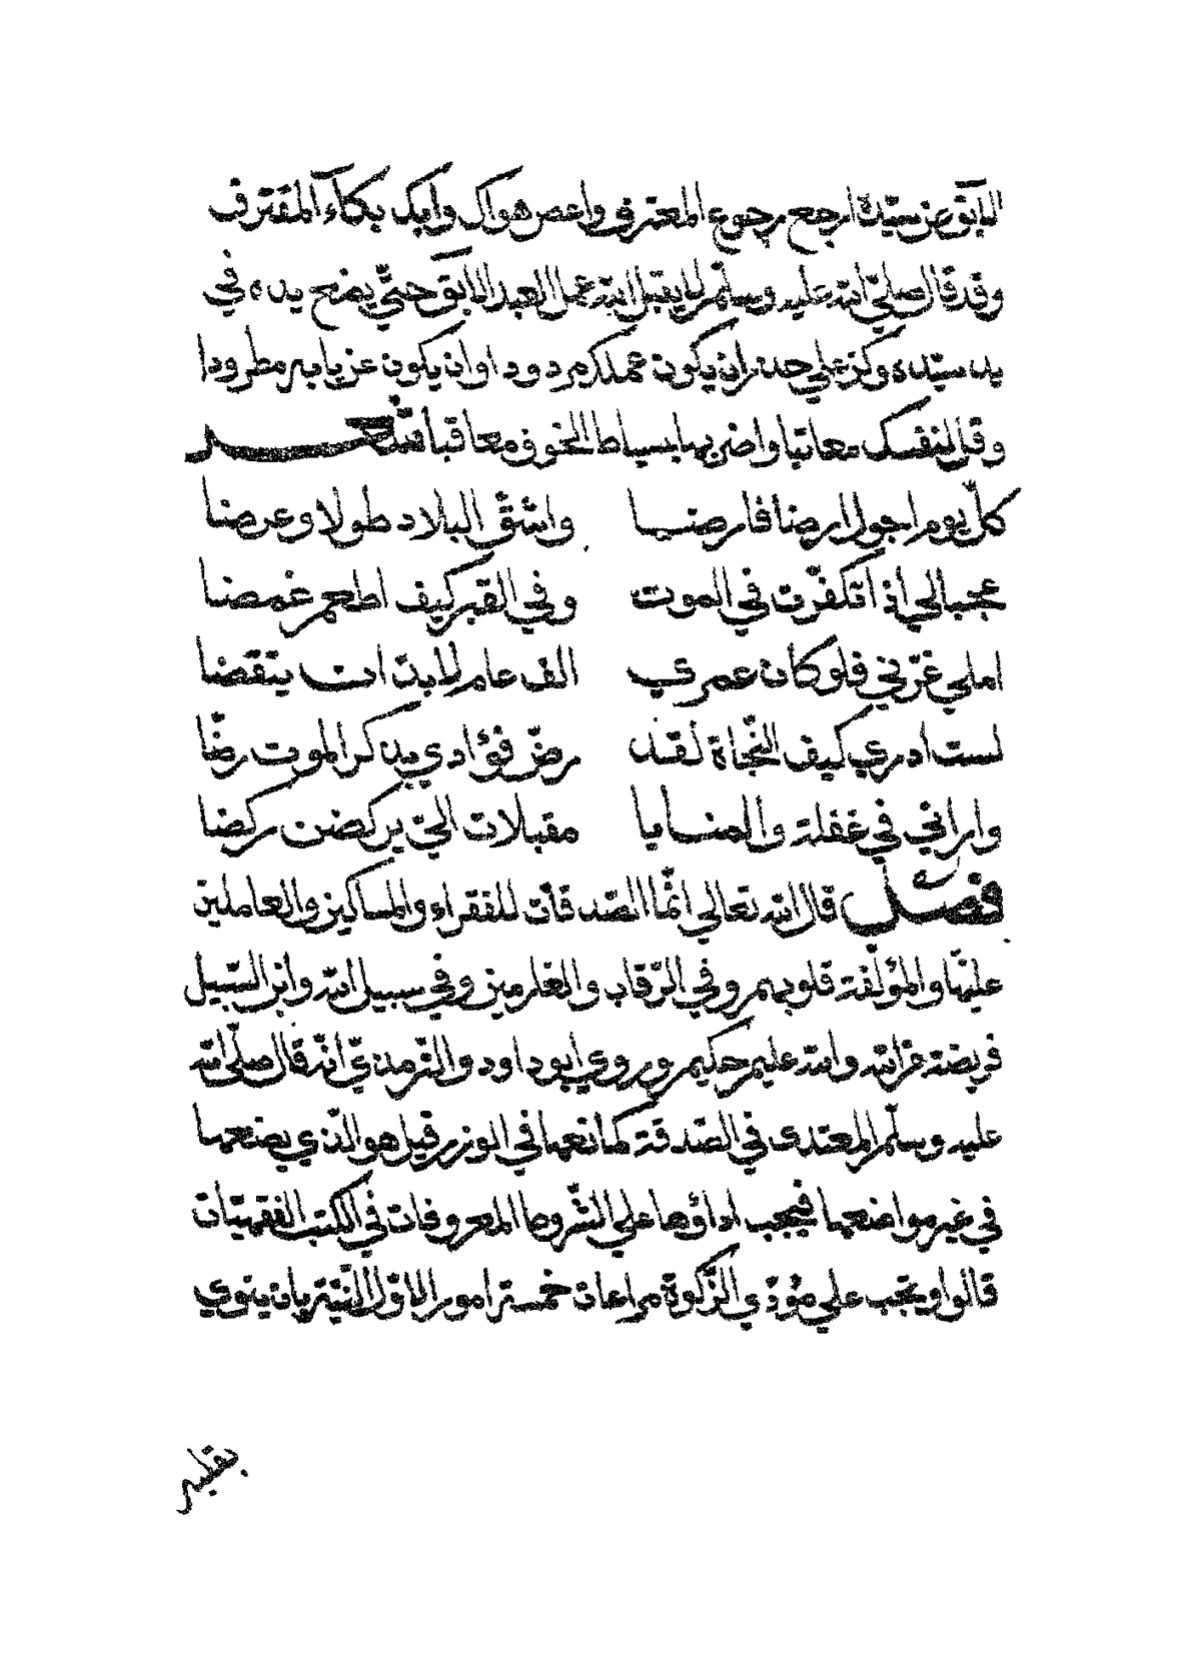 الآبق عن سيّدة ارجع رجوع المعترف واعص هواك وابك بكاء المقترف
وقد قال صلّي الله عليه وسلّم لا يقبل الله عمل العبد الآبق حتّي يضع يده في
يد سيّده وكن علي حذر ان يكون عملك مردودا وان يكون عن بابه مطرودا
وقل لنفسك معاتبا واضربها بسياط الخوف معاقبا شعر
كلّ يوم اجول ارضا فارضا واشقّ البلاد طولا وعرضا
عجبا لي اذا تكفّرت في الموت وفي القبر كيف اطعم غمضا
املي غرّني فلو كان عمري الف عام لا بدّ ان يتقضا
لست ادري كيف النّجاة لقد رضّ فؤادي بذكر الموت رضّا
واراني في غفلة والمنايا مقبلات اليّ يركضن ركضا
فصل قال الله تعالي انّما الصّدقات للفقراء والمساكين والعاملين
عليها والمؤلّفة قلوبهم وفي الرّقاب والغارمين وفي سبيل الله وابن السّبيل
فريضة من الله والله عليم حكيم وروي ابو داود والتّرمذيّ انّه قال صلّي الله
عليه وسلّم المعتدى في الصّدقة كمانعها في الوزر قيل هو الّذي يضعها
في غير مواضعها فيجب اداؤها علي الشّروط المعروفات في الكتب الفقهيّات
قالوا ويجب علي مؤدّي الزّكوة مراعات خمسة امور الاوّل النّيّة بان ينوي
بقلبه